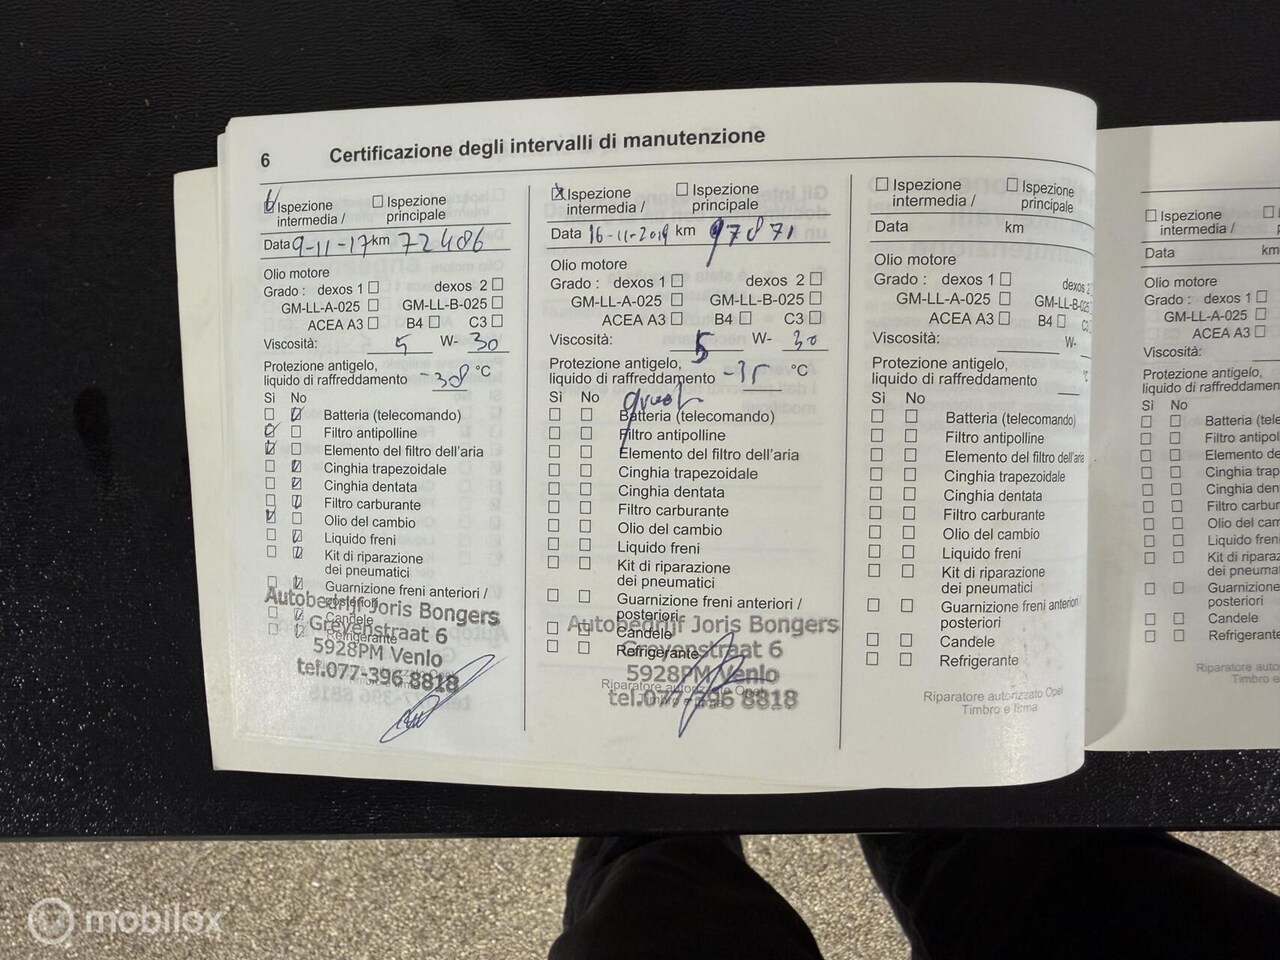 6 Certificazione degli intervalli di manutenzione
Ispezione intermedia / Ispezione principale
Data 9-11-17 km 72486
Olio motore
Grado : dexos 1 dexos 2
GM-LL-A-025 GM-LL-B-025
ACEA A3 B4 C3
Viscosità: 5 W- 30
Protezione antigelo,
liquido di raffreddamento -38 °C
Sì No
Batteria (telecomando)
Filtro antipolline
Elemento del filtro dell'aria
Cinghia trapezoidale
Cinghia dentata
Filtro carburante
Olio del cambio
Liquido freni
Kit di riparazione
dei pneumatici
Guarnizione freni anteriori /
posteriori
Candele
Refrigerante
Autobedrijf Joris Bongers
Greyenstraat 6
5928PM Venlo
tel.077-396 8818
Ispezione intermedia / Ispezione principale
Data 16-11-2019 km 97871
Olio motore
Grado : dexos 1 dexos 2
GM-LL-A-025 GM-LL-B-025
ACEA A3 B4 C3
Viscosità: 5 W- 30
Protezione antigelo,
liquido di raffreddamento -35 °C
Sì No
Batteria (telecomando)
Filtro antipolline
Elemento del filtro dell'aria
Cinghia trapezoidale
Cinghia dentata
Filtro carburante
Olio del cambio
Liquido freni
Kit di riparazione
dei pneumatici
Guarnizione freni anteriori /
posteriori
Candele
Refrigerante
Autobedrijf Joris Bongers
Greyenstraat 6
5928PM Venlo
Riparatore autorizzato Opel
tel.077-396 8818
Ispezione intermedia / Ispezione principale
Data km
Olio motore
Grado : dexos 1 dexos 2
GM-LL-A-025 GM-LL-B-025
ACEA A3 B4 C3
Viscosità: W-
Protezione antigelo,
liquido di raffreddamento °C
Sì No
Batteria (telecomando)
Filtro antipolline
Elemento del filtro dell'aria
Cinghia trapezoidale
Cinghia dentata
Filtro carburante
Olio del cambio
Liquido freni
Kit di riparazione
dei pneumatici
Guarnizione freni anteriori /
posteriori
Candele
Refrigerante
Riparatore autorizzato Opel
Timbro e firma
Ispezione
intermedia /
Data km
Olio motore
Grado : dexos 1
GM-LL-A-025
ACEA A3
Viscosità:
Protezione antigelo,
liquido di raffreddamento
Sì No
Batteria (telecoma
Filtro antipol
Elemento de
Cinghia trap
Cinghia den
Filtro carbu
Olio del cam
Liquido fren
Kit di ripara
dei pneuma
Guarnizione
posteriori
Candele
Refrigerante
Riparatore autorizzat
Timbro e
mobilox